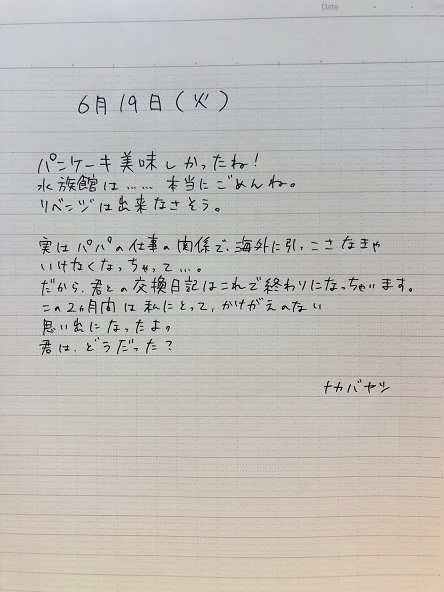 Date
6月19日(火)
パンケーキ美味しかったね!
水族館は……本当にごめんね。
リベンジは出来なさそう。
実はパパの仕事の関係で、海外に引っこさなきゃ
いけなくなっちゃって…。
だから、君との交換日記はこれで終わりになっちゃいます。
この2ヵ月間は私にとって、かけがえのない
思い出になったよ。
君は、どうだった?
ナカバヤシ